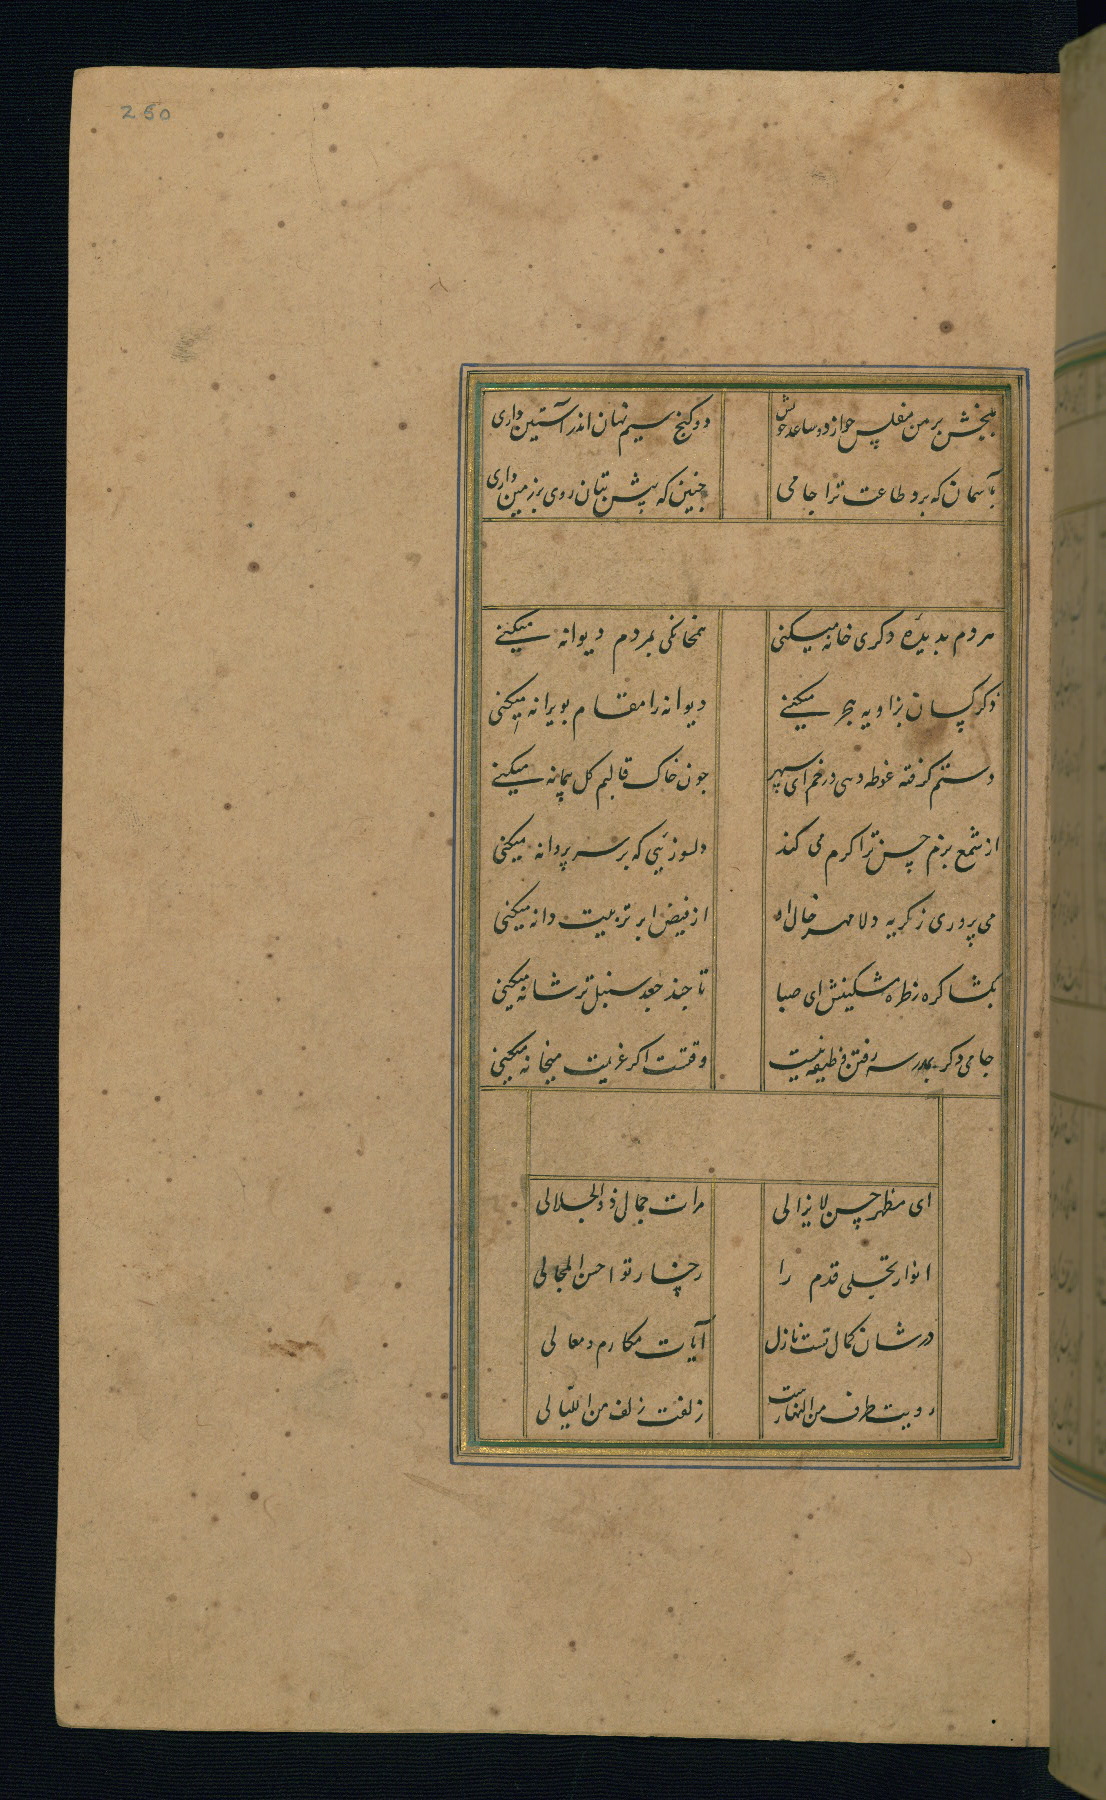 250
ببخش بر من مفلس چو از دو ساعد خویش دو گنج سیم نهان اندر آستین داری
بآسمان که برد طاعت ترا جامی چنین که پیش بتان روی بر زمین داری
هر دم بدیدهٔ دکری خانه میکنی همخانکی بمردم دیوانه میکنی
ذکر کسان بزاویه هجر میکنی دیوانه را مقام بویرانه میکنی
دستم کرفته غوطه دهی در خم ای سپهر چون خاک قالبم کل پیمانه میکنی
از شمع بزم حسن ترا کرم می کند دلسوزیی که بر سر پروانه میکنی
می پروری ز کریه دلا مهر خال او از فیض ابر تربیت دانه میکنی
بکشا کره ز طره مشکینش ای صبا تا چند جعد سنبل تر شانه میکنی
جامی دکر بمدرسه رفتن وظیفه نیست وقتست اکر عزیمت میخانه میکنی
ای مظهر حسن لا یزالی مرات جمال ذوالجلالی
انوار تجلی قدم را رخسار تو احسن المجالی
در شان کمال تست نازل آیات مکارم و معالی
رویت طرف من النهارست زلفت زلف من اللیالی